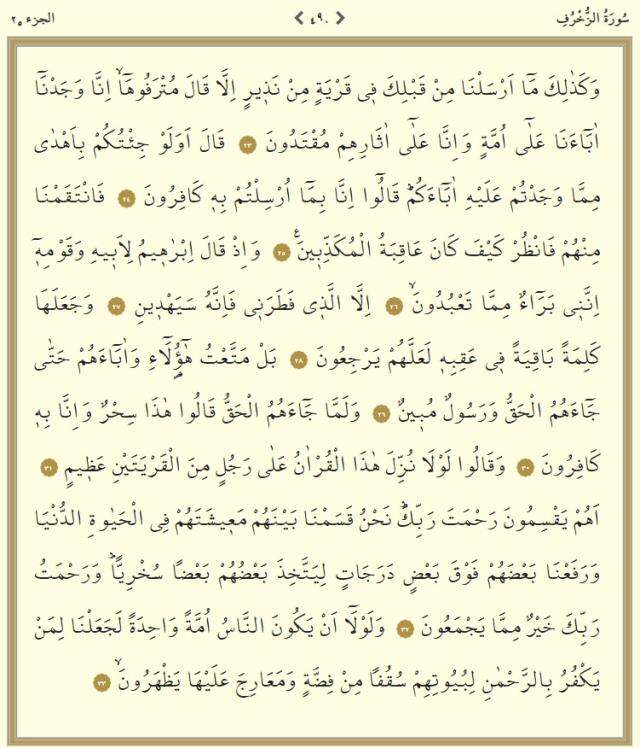 سُورَةُ الزُّخْرُفِ ٤٩٠ الجزء ٢٥
وَكَذٰلِكَ مَٓا اَرْسَلْنَا مِنْ قَبْلِكَ ف۪ي قَرْيَةٍ مِنْ نَذ۪يرٍ اِلَّا قَالَ مُتْرَفُوهَٓاۙ اِنَّا وَجَدْنَٓا
اٰبَٓاءَنَا عَلٰٓى اُمَّةٍ وَاِنَّا عَلٰٓى اٰثَارِهِمْ مُقْتَدُونَ ٢٣ قَالَ اَوَلَوْ جِئْتُكُمْ بِاَهْدٰى
مِمَّا وَجَدْتُمْ عَلَيْهِ اٰبَٓاءَكُمْۜ قَالُٓوا اِنَّا بِمَٓا اُرْسِلْتُمْ بِه۪ كَافِرُونَ ٢٤ فَانْتَقَمْنَا
مِنْهُمْ فَانْظُرْ كَيْفَ كَانَ عَاقِبَةُ الْمُكَذِّب۪ينَ۟ ٢٥ وَاِذْ قَالَ اِبْرٰه۪يمُ لِاَب۪يهِ وَقَوْمِه۪ٓ
اِنَّن۪ي بَرَٓاءٌ مِمَّا تَعْبُدُونَۙ ٢٦ اِلَّا الَّذ۪ي فَطَرَن۪ي فَاِنَّهُ سَيَهْد۪ينِ ٢٧ وَجَعَلَهَا
كَلِمَةً بَاقِيَةً ف۪ي عَقِبِه۪ لَعَلَّهُمْ يَرْجِعُونَ ٢٨ بَلْ مَتَّعْتُ هٰٓؤُ۬لَٓاءِ وَاٰبَٓاءَهُمْ حَتّٰى
جَٓاءَهُمُ الْحَقُّ وَرَسُولٌ مُب۪ينٌ ٢٩ وَلَمَّا جَٓاءَهُمُ الْحَقُّ قَالُوا هٰذَا سِحْرٌ وَاِنَّا بِه۪
كَافِرُونَ ٣٠ وَقَالُوا لَوْلَا نُزِّلَ هٰذَا الْقُرْاٰنُ عَلٰى رَجُلٍ مِنَ الْقَرْيَتَيْنِ عَظ۪يمٍ ٣١
اَهُمْ يَقْسِمُونَ رَحْمَتَ رَبِّكَۜ نَحْنُ قَسَمْنَا بَيْنَهُمْ مَع۪يشَتَهُمْ فِي الْحَيٰوةِ الدُّنْيَا
وَرَفَعْنَا بَعْضَهُمْ فَوْقَ بَعْضٍ دَرَجَاتٍ لِيَتَّخِذَ بَعْضُهُمْ بَعْضًا سُخْرِيًّاۜ وَرَحْمَتُ
رَبِّكَ خَيْرٌ مِمَّا يَجْمَعُونَ ٣٢ وَلَوْلَٓا اَنْ يَكُونَ النَّاسُ اُمَّةً وَاحِدَةً لَجَعَلْنَا لِمَنْ
يَكْفُرُ بِالرَّحْمٰنِ لِبُيُوتِهِمْ سُقُفًا مِنْ فِضَّةٍ وَمَعَارِجَ عَلَيْهَا يَظْهَرُونَۙ ٣٣